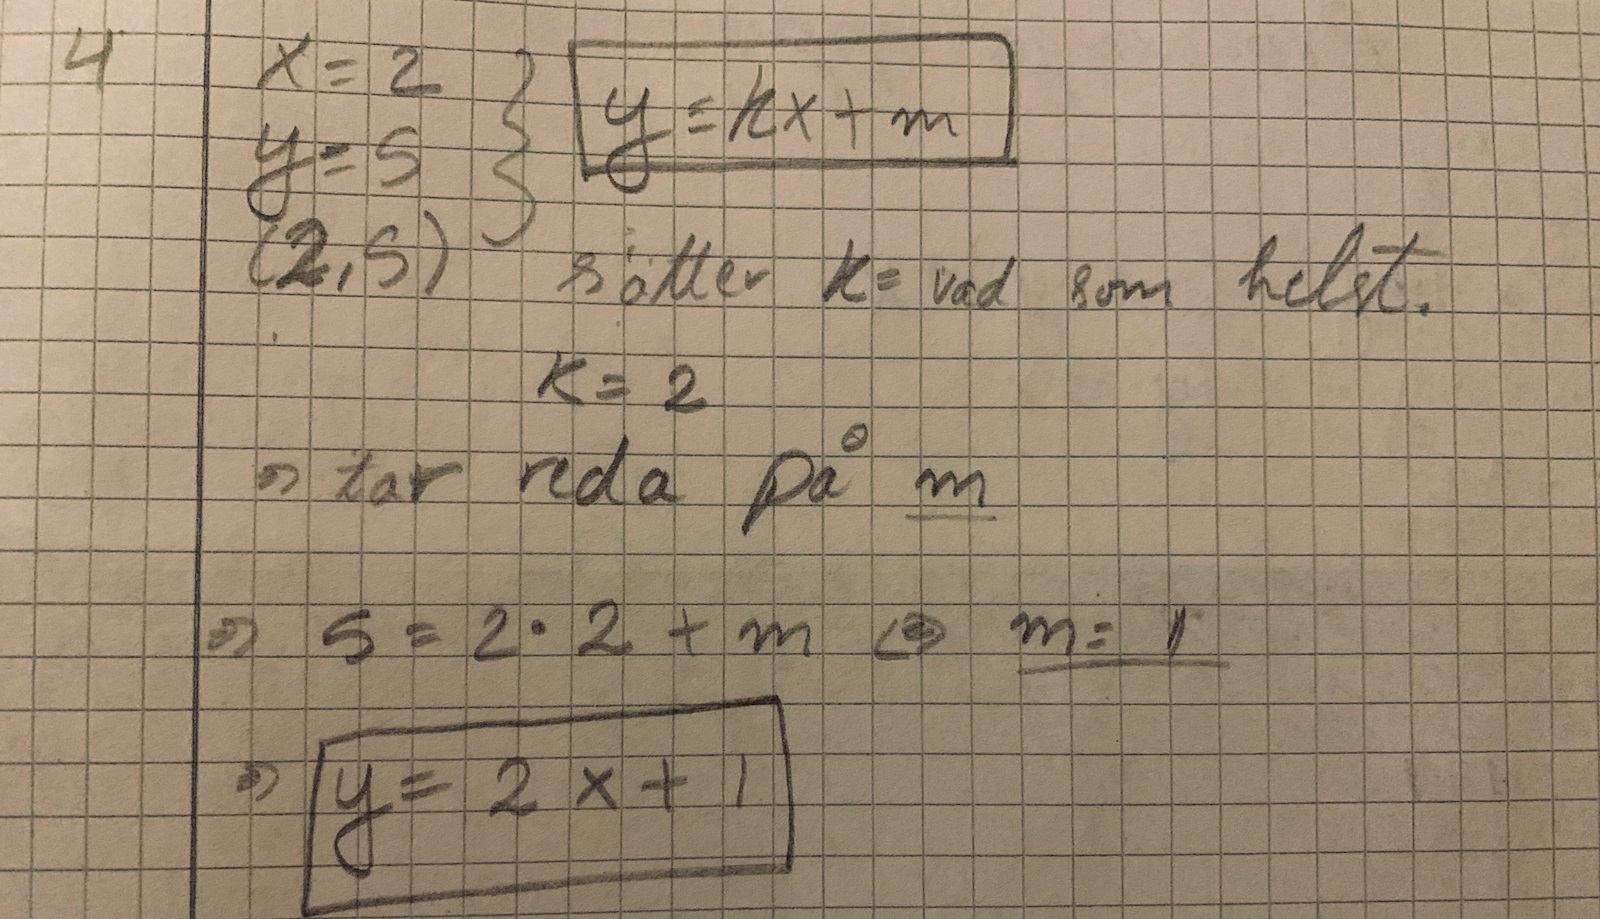 4 x = 2
y = 5
y = kx + m
(2,5) sätter k = vad som helst.
k = 2
⇒ tar reda på m
⇒ 5 = 2 · 2 + m ⇔ m = 1
⇒ y = 2x + 1